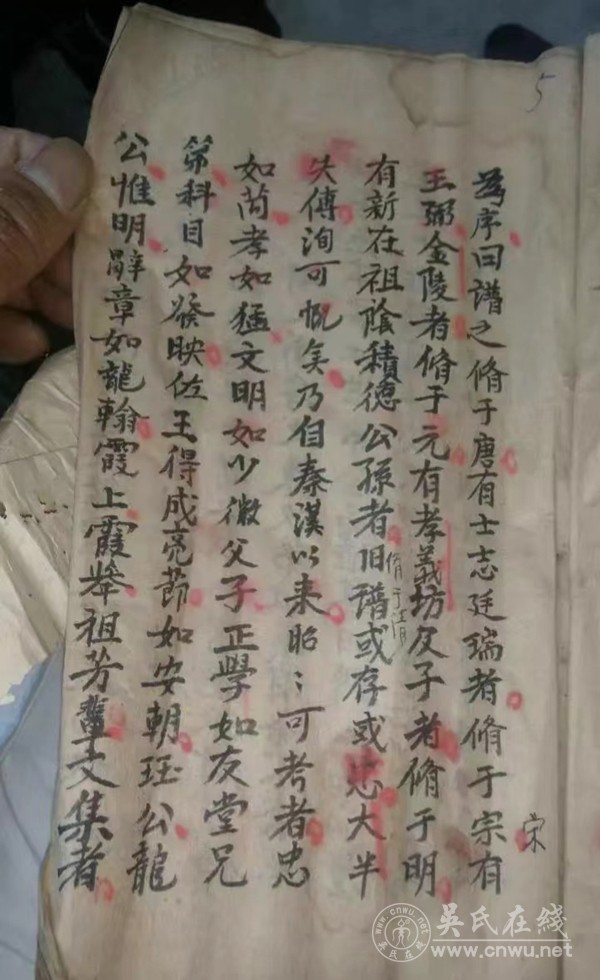 5
為序曰譜之脩于唐有士志廷瑞者脩于宗有
宋
玉弼金陵者脩于元有孝義坊友子者脩于明
有新在祖陰積德公孫者旧譜或存或忘大半
脩于清
失傳洵可慨矣乃自秦漢以来昭〻可考者忠
如芮孝如猛文明如少微父子正學如友堂兄
第科目如發映佐王得成亮節如安朝珏公龍
公惟明辭章如龍翰霞上霞舉祖芳輩文集者
吳氏在綫
www.cnwu.net